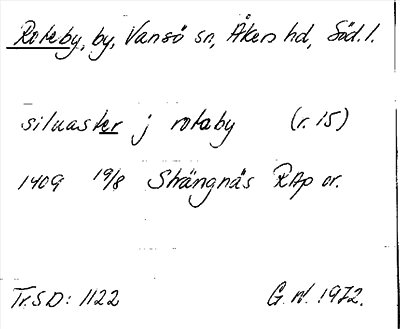 Roteby, by, Vansö sn, Åkers hd, Söd. l.
siluaster j rotaby (r. 15)
1409 19/8 Strängnäs RAp or.
Tr. SD: 1122 G. W. 1972.